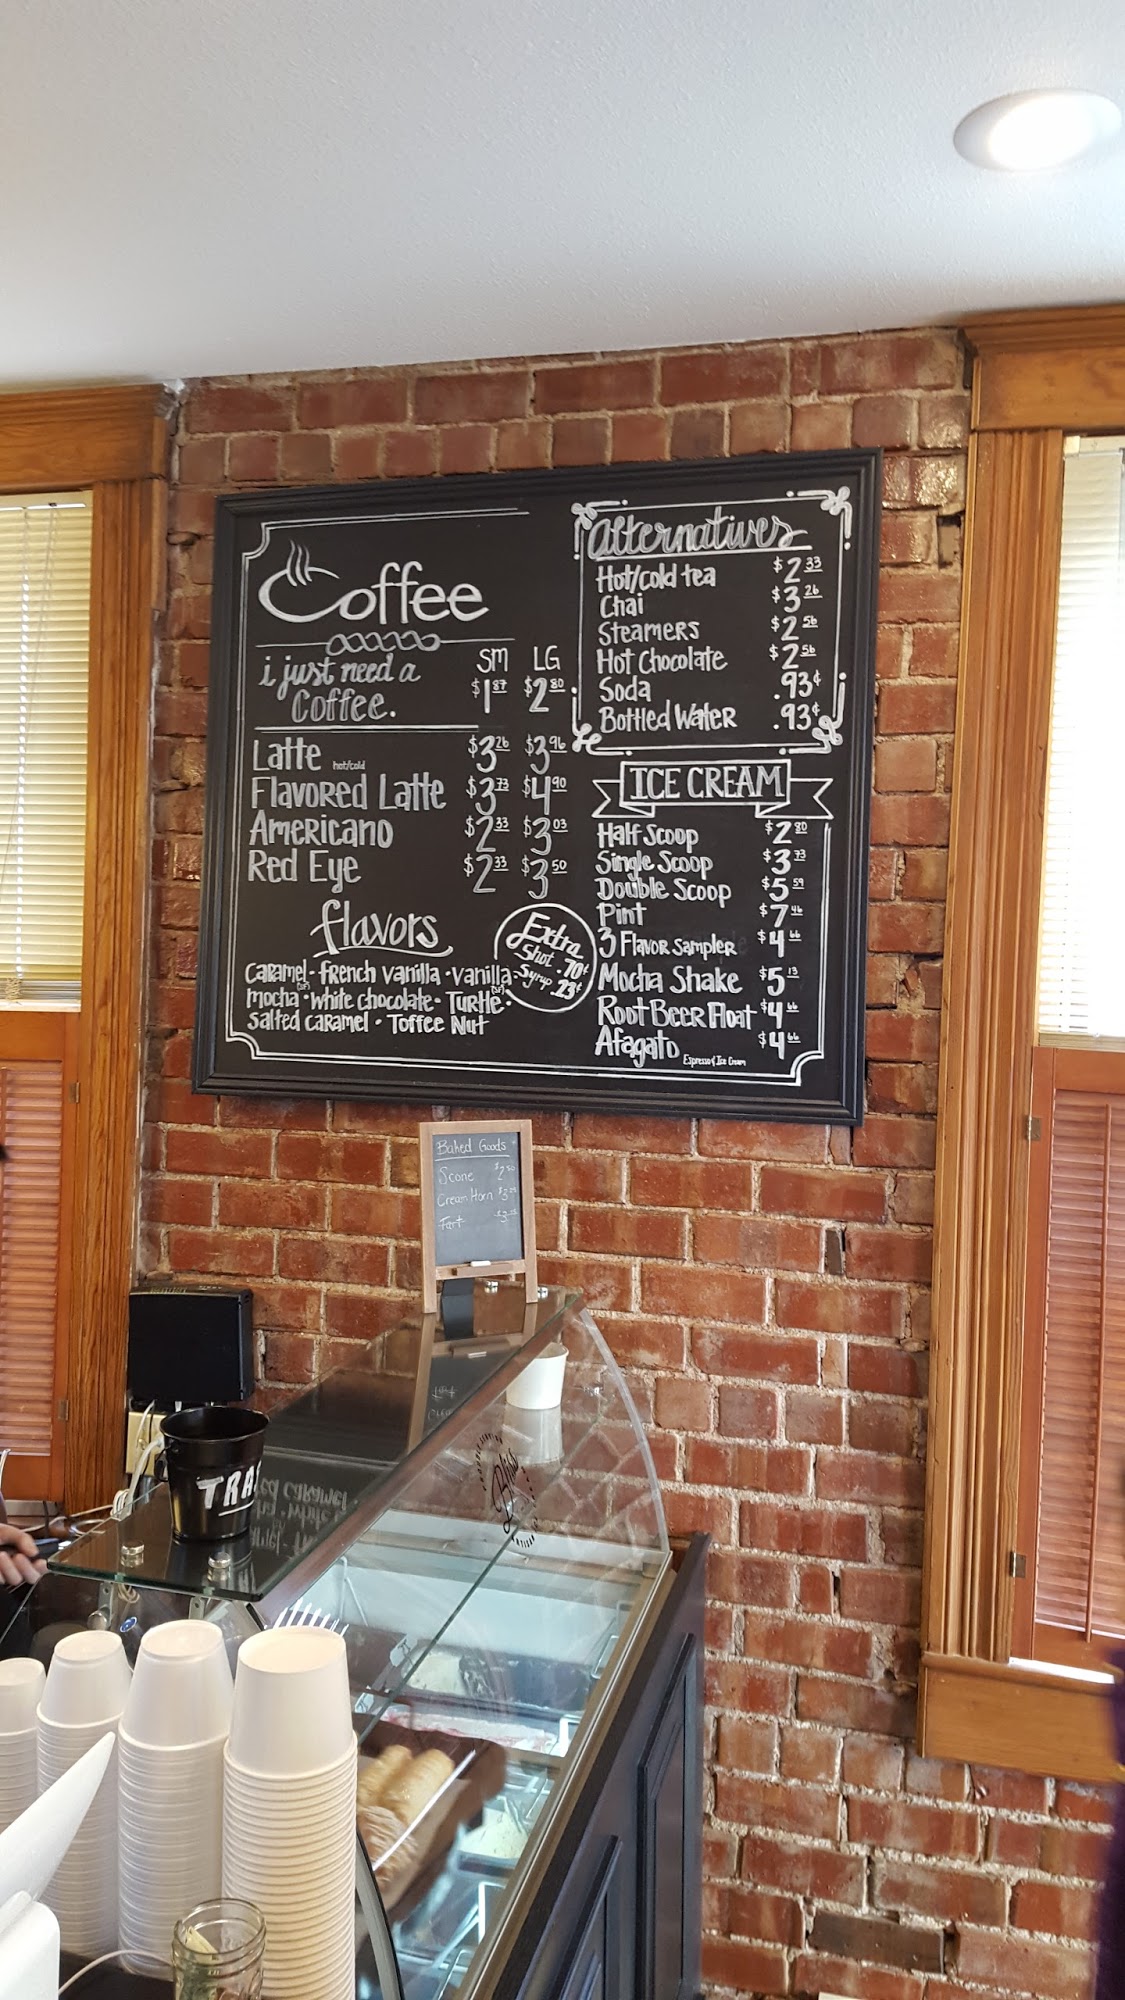 Coffee
SM LG
i just need a
Coffee. $1.87 $2.80
Latte hot/cold $3.26 $3.96
Flavored Latte $3.73 $4.90
Americano $2.33 $3.03
Red Eye $2.33 $3.50
flavors
Caramel - French vanilla - vanilla (SF)
mocha - white chocolate - Turtle (SF) -
Salted Caramel - Toffee Nut
Extra
Shot .70¢
Syrup .23¢
Alternatives
Hot/cold tea $2.33
Chai $3.26
Steamers $2.56
Hot Chocolate $2.56
Soda .93¢
Bottled Water .93¢
ICE CREAM
Half Scoop $2.80
Single Scoop $3.73
Double Scoop $5.59
Pint $7.46
3 Flavor Sampler $4.66
Mocha Shake $5.13
Root Beer Float $4.66
Afagato $4.66
Espresso & Ice Cream
Baked Goods
Scone $2.50
Cream Horn
Tart
TRA
Bliss